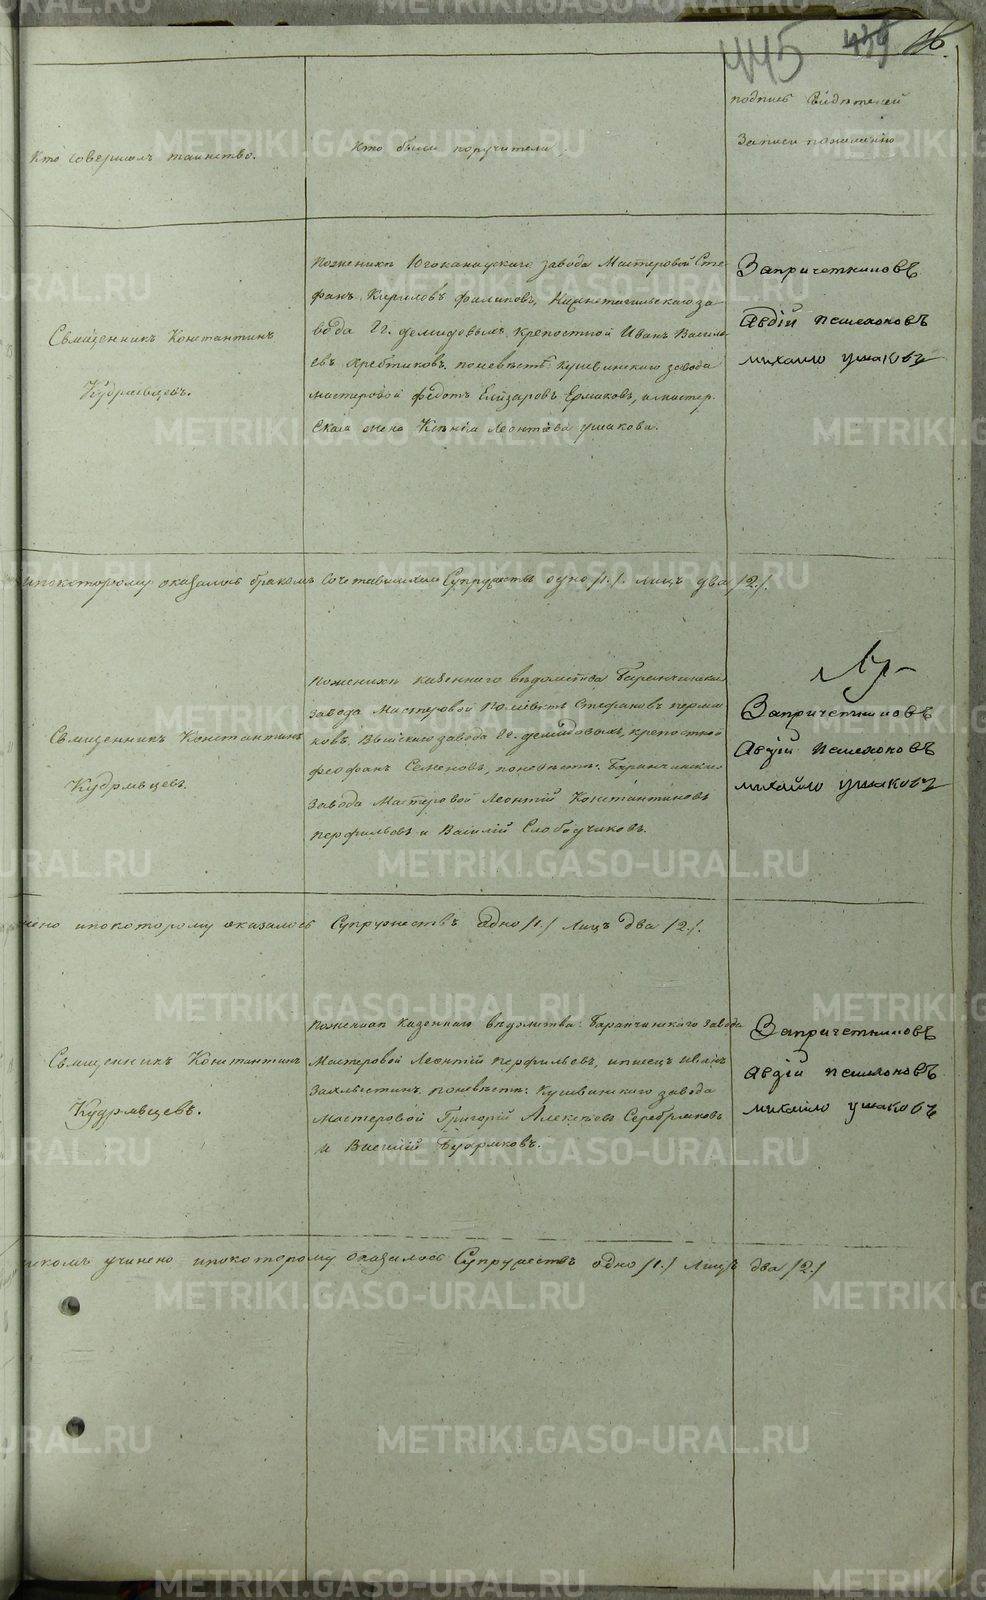 445 16
Кто совершалъ таинство.
Кто были поручители
подпись свидѣтелей
Записи пожеланію
Священникъ Константинъ
Кудрявцевъ.
Поженихѣ Югоканауского завода Мастеровой Сте
фанъ Кириловъ Филиповъ, Нижнетагильскаго за
вода Гг. Демидовыхъ крепостной Иванъ Василь
евъ Хребтиковъ, поневѣстѣ Кушвинскаго завода
мастеровой Федотъ Елизаровъ Ермаковъ, и мастер
ская жена Ксенія Леонтіева Ушакова.
Запричетниковъ
Авдій Пешехоновъ
михаило ушаковъ
ипокоторому оказалось бракомъ сочетавшихся Супружествъ одно /1./ лицъ два /2./
Священникъ Константинъ
Кудрявцевъ.
Поженихѣ казеннаго вѣдомства Баранчинскаго
завода Мастеровой Стефановъ перма
ковъ, Выйскаго завода Гг. Демидовыхъ, крепостной
Феофанъ Семеновъ, поневѣстѣ: Баранчинскаго
завода Мастеровой Леонтій Константиновъ
перфильевъ и Василій Слободчиковъ.
Запричетниковъ
Авдій Пешехоновъ
михайло ушаковъ
нено ипокоторому оказалось Супружествъ одно /1./ лицъ два /2./
Священникъ Константинъ
Кудрявцевъ.
Поженихѣ Казеннаго вѣдомства: Баранчинскаго завода
Мастеровой Леонтій перфильевъ, иписецъ Иванъ
поневѣстѣ: Кушвинскаго завода
мастеровой Григорій Алексѣевъ Серебряковъ
и Василій Бушмаковъ.
Запричетниковъ
Авдій Пешехоновъ
михаило ушаковъ
никомъ учинено ипокоторому оказалось Супружествъ одно /1./ лицъ два /2./